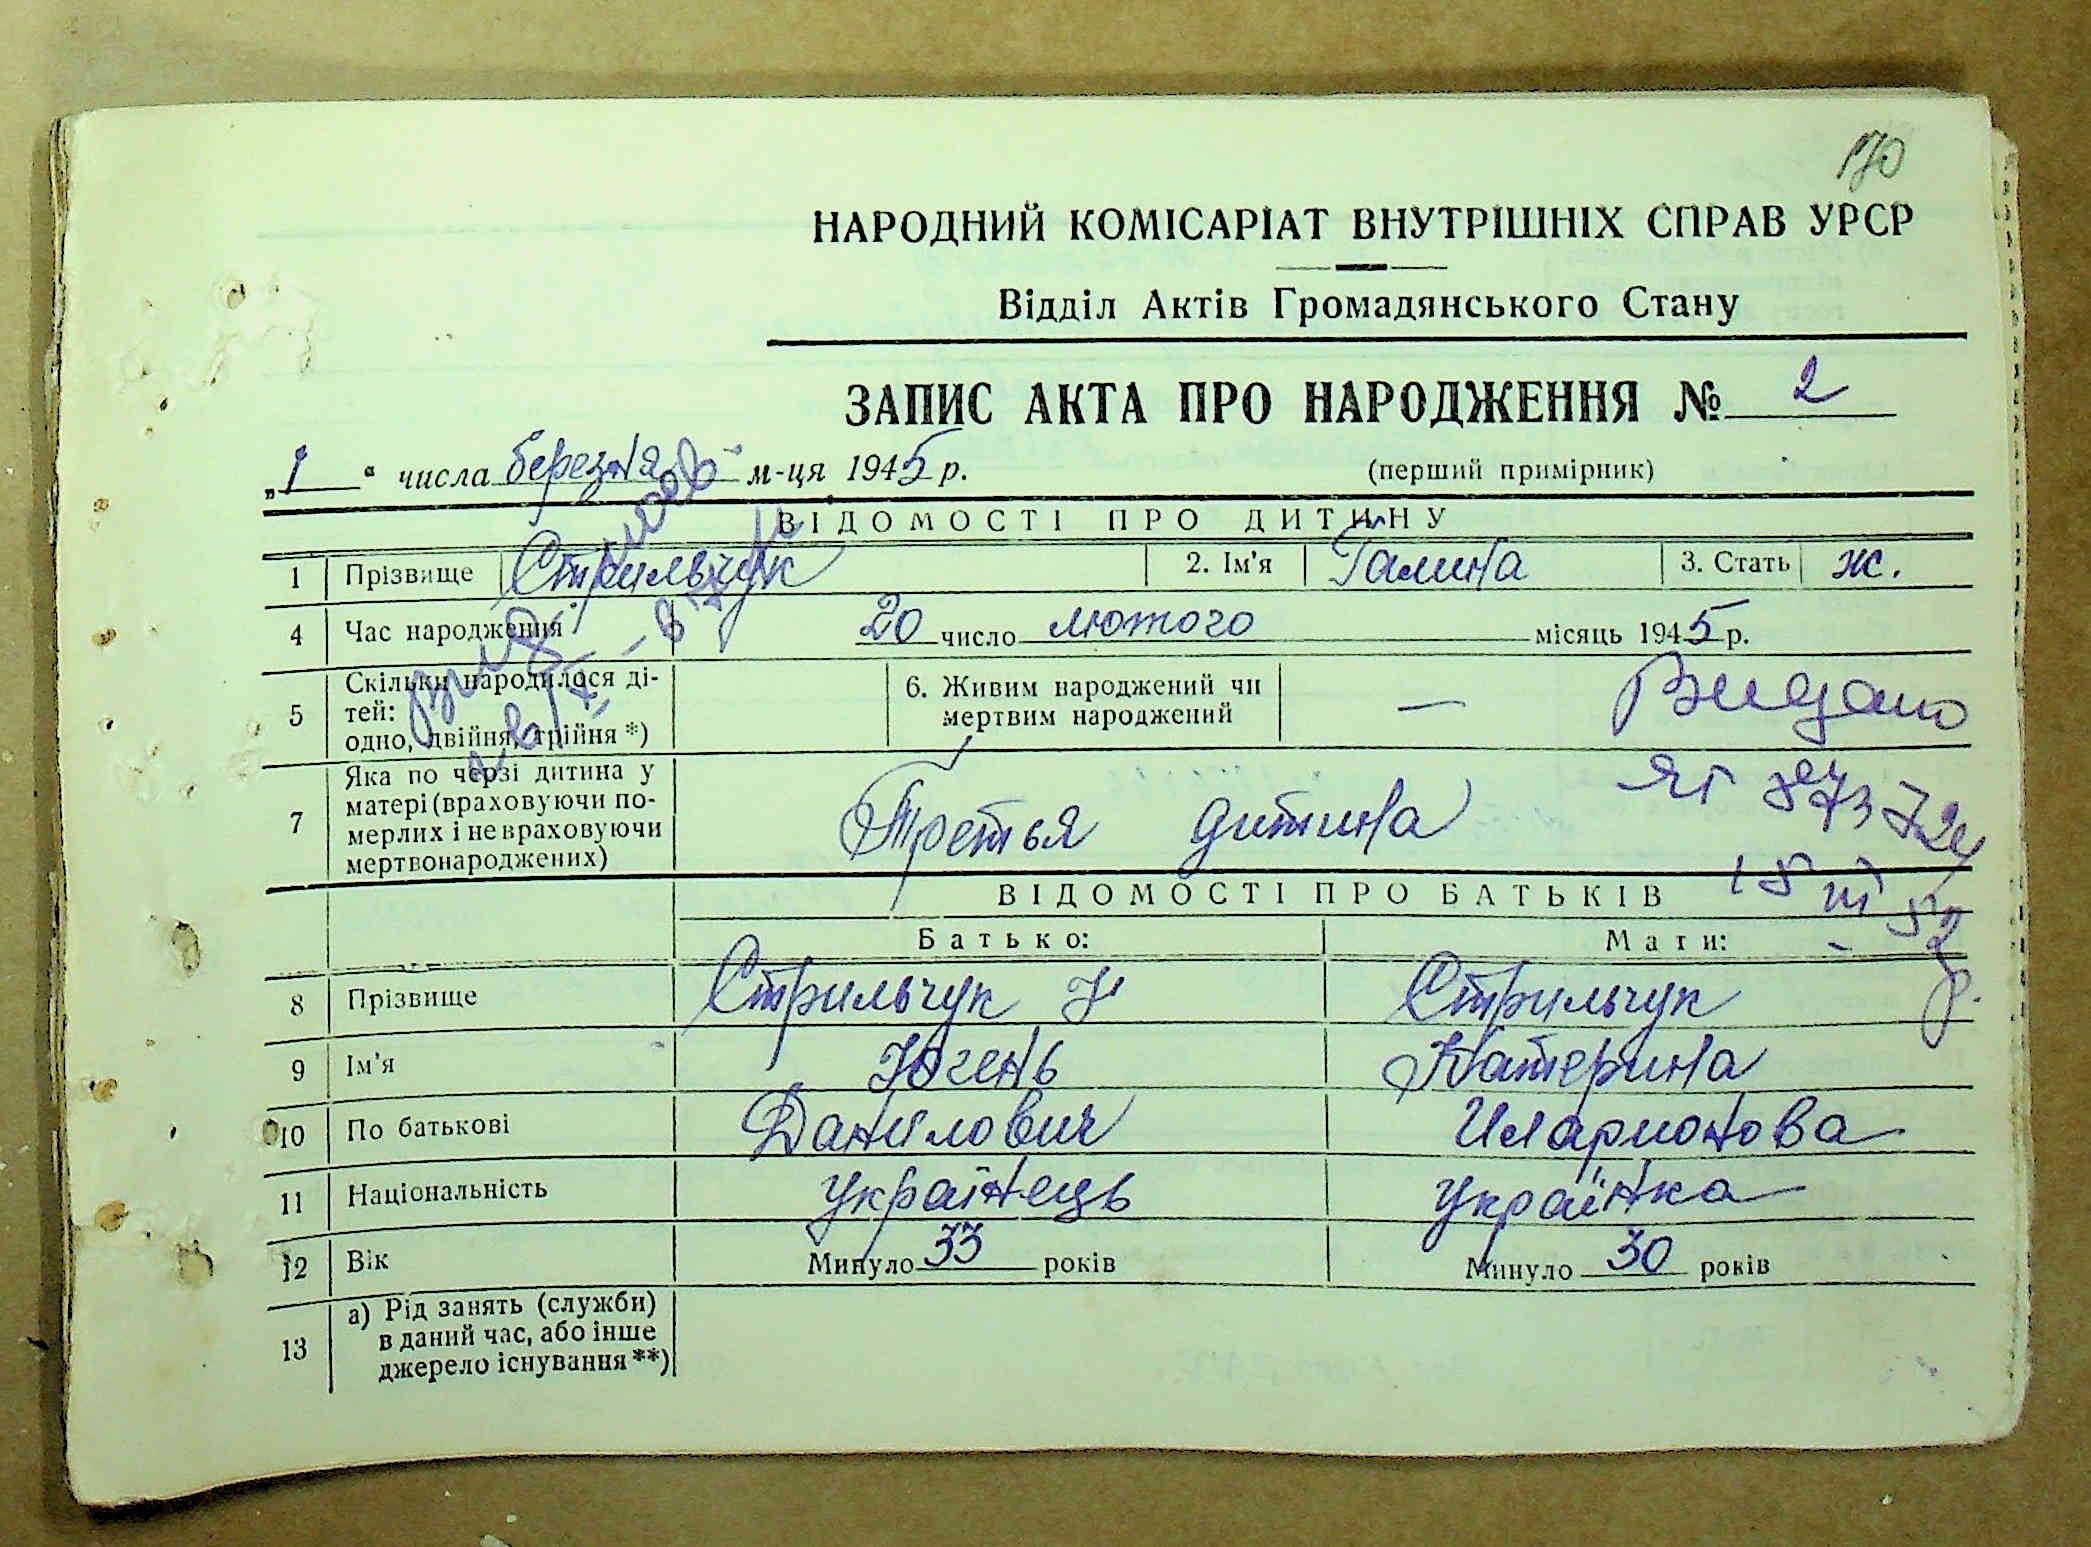 170
НАРОДНИЙ КОМІСАРІАТ ВНУТРІШНІХ СПРАВ УРСР
Відділ Актів Громадянського Стану
ЗАПИС АКТА ПРО НАРОДЖЕННЯ № 2
„1“ числа березня м-ця 1945 р. (перший примірник)
ВІДОМОСТІ ПРО ДИТИНУ
1 Прізвище Стрильчук 2. Ім'я Галина 3. Стать ж.
4 Час народження 20 число лютого місяць 1945 р.
5 Скільки народилося дітей:
одно, двійня, трійня *)
6. Живим народжений чи
мертвим народжений —
Видано
ЯГ
18 III 52 р.
7 Яка по черзі дитина у
матері (враховуючи по-
мерлих і не враховуючи
мертвонароджених)
Третья дитина
ВІДОМОСТІ ПРО БАТЬКІВ
Батько: Мати:
8 Прізвище Стрильчук Стрильчук
9 Ім'я Югень Катерина
10 По батькові Данилович Иларионова
11 Національність Українець Українка
12 Вік Минуло 33 років Минуло 30 років
13 а) Рід занять (служби)
в даний час, або інше
джерело існування **)